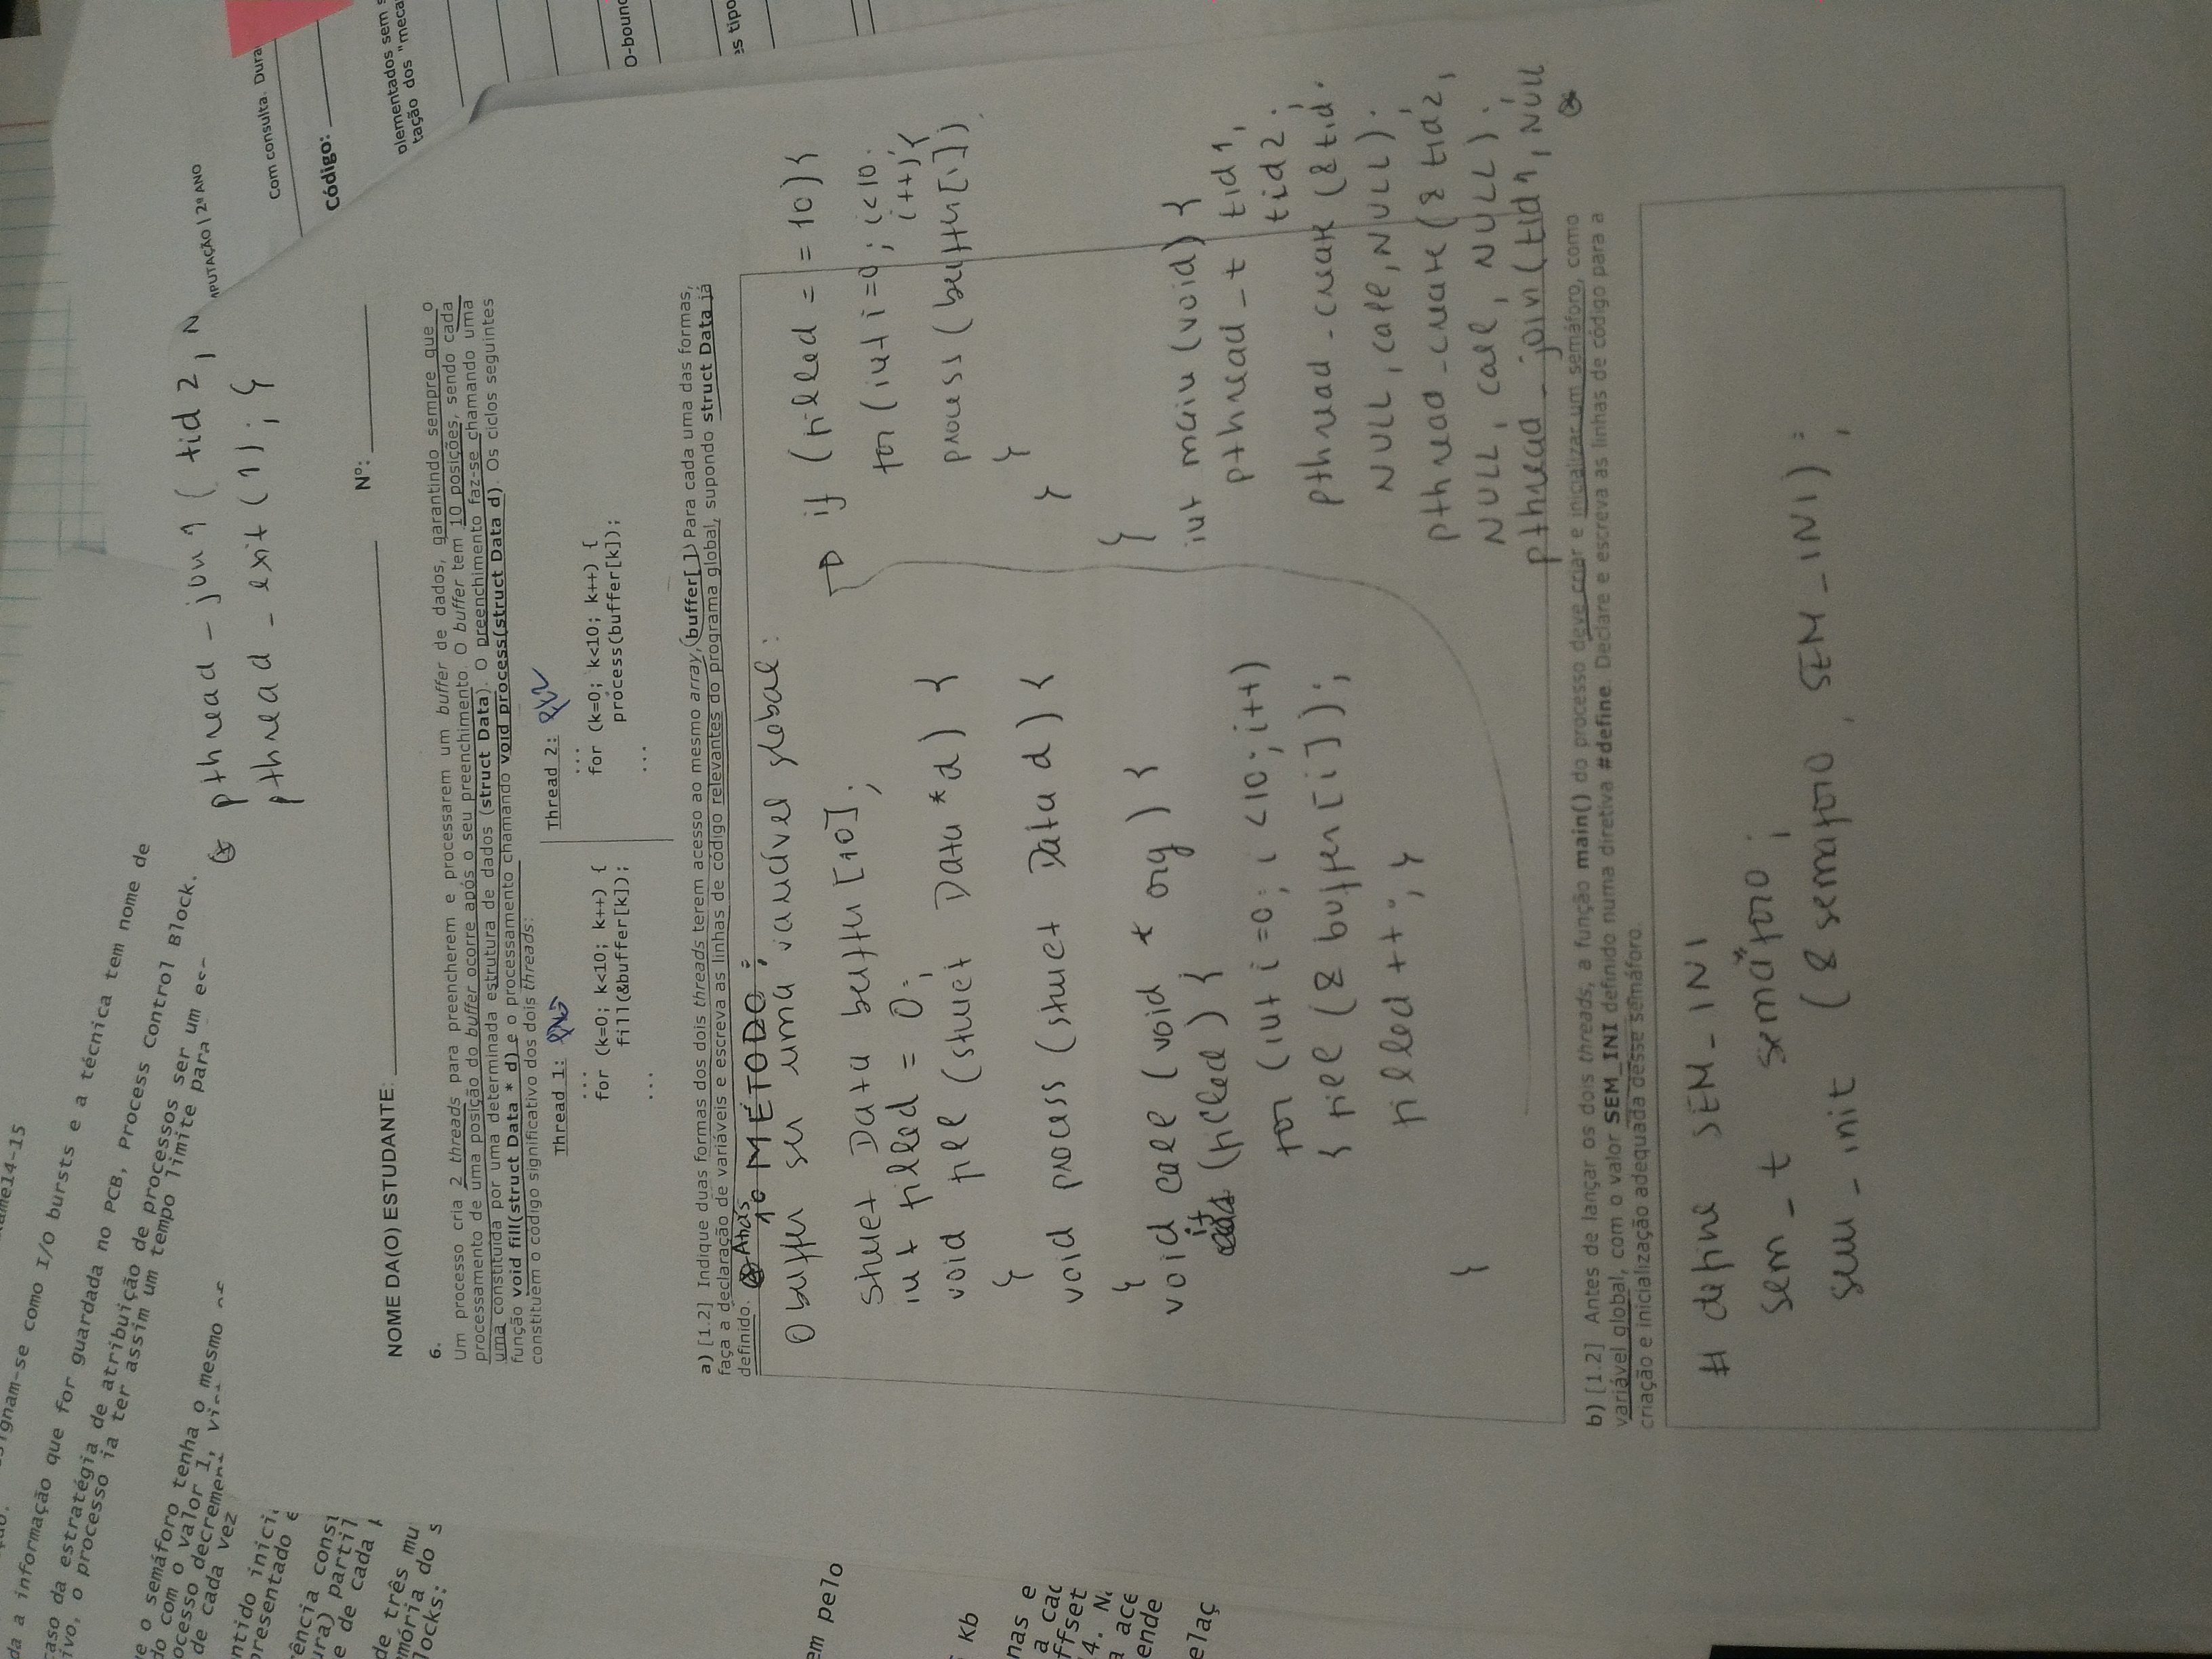 ame14-15
signam-se como I/O bursts e a técnica tem nome de
da a informação que for guardada no PCB, Process Control Block.
caso da estratégia de atribuição de processos ser um
ivo, o processo ia ter assim um tempo limite para
e o semáforo tenha o mesmo
do com o valor 1,
ocesso decrement
de cada vez
ntido inici
presentado e
rência const
ura) partil
e de cada
de três mu
emória do s
locks:
em pelo
Kb
nas e
a cac
ffset
4. No
a ace
ende
elaç
⊗ pthread_join1 ( tid 2, N
pthread_exit(1); }
MPUTAÇÃO | 2º ANO
Com consulta. Dura
Código:
plementados sem s
tação dos "meca
O-bound
es tipo
NOME DA(O) ESTUDANTE: Nº:
6.
Um processo cria 2 threads para preencherem e processarem um buffer de dados, garantindo sempre que o
processamento de uma posição do buffer ocorre após o seu preenchimento. O buffer tem 10 posições, sendo cada
uma constituída por uma determinada estrutura de dados (struct Data). O preenchimento faz-se chamando uma
função void fill(struct Data * d) e o processamento chamando void process(struct Data d). Os ciclos seguintes
constituem o código significativo dos dois threads:
Thread 1:
...
for (k=0; k<10; k++) {
fill(&buffer[k]);
...
Thread 2: ft2
...
for (k=0; k<10; k++) {
process(buffer[k]);
...
a) [1.2] Indique duas formas dos dois threads terem acesso ao mesmo array, buffer[ ] Para cada uma das formas,
faça a declaração de variáveis e escreva as linhas de código relevantes do programa global, supondo struct Data já
definido. ⊗ Atrás
1º MÉTODO:
O buffer ser uma variável global:
struct Data buffer [10];
int filled = 0;
void fill (struct Data *d) {
}
void process (struct Data d) {
}
void call (void * arg) {
if (filled) {
for (int i=0; i <10; i++)
{ fill (& buffer [i]);
filled ++; }
}
→ if (filled == 10) {
for (int i=0; i<10;
i++) {
process (buffer[i])
}
}
}
int main (void) {
pthread_t tid1,
tid2;
pthread_create (& tid
NULL, call, NULL);
pthread_create (& tid2,
NULL, call, NULL);
pthread_join (tid1, NULL
⊗
b) [1.2] Antes de lançar os dois threads, a função main() do processo deve criar e inicializar um semáforo, como
variável global, com o valor SEM_INI definido numa diretiva #define. Declare e escreva as linhas de código para a
criação e inicialização adequada desse semáforo.
# define SEM_INI
sem_t semáforo;
sem_init (& semaforo, SEM_INI);